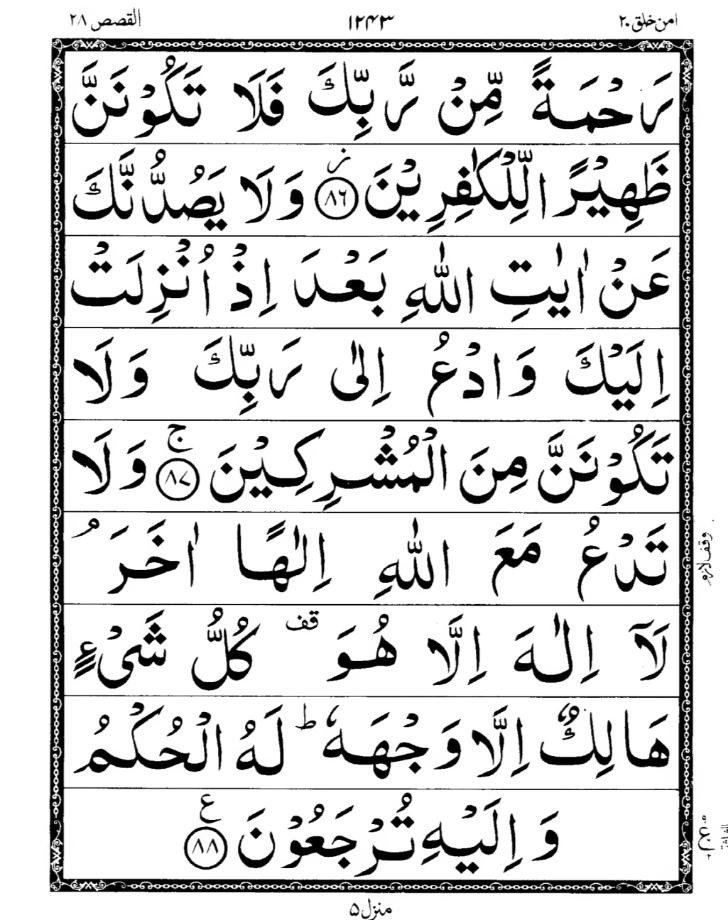 امن خلق ۲۰ ۱۲۴۳ القصص ۲۸
رَحۡمَةً مِّنۡ رَّبِّكَ فَلَا تَكُوۡنَنَّ
ظَهِيۡرًا لِّلۡكٰفِرِيۡنَ ۸۶ ز وَلَا يَصُدُّنَّكَ
عَنۡ اٰيٰتِ اللّٰهِ بَعۡدَ اِذۡ اُنۡزِلَتۡ
اِلَيۡكَ وَادۡعُ اِلٰى رَبِّكَ وَلَا
تَكُوۡنَنَّ مِنَ الۡمُشۡرِكِيۡنَ ۸۷ ج وَلَا
تَدۡعُ مَعَ اللّٰهِ اِلٰهًا اٰخَرَ م
وقف لازم
لَاۤ اِلٰهَ اِلَّا هُوَ قف كُلُّ شَىۡءٍ
هَالِكٌ اِلَّا وَجۡهَهٗ ط لَهُ الۡحُكۡمُ
وَاِلَيۡهِ تُرۡجَعُوۡنَ ۸۸ ع
منزل ۵